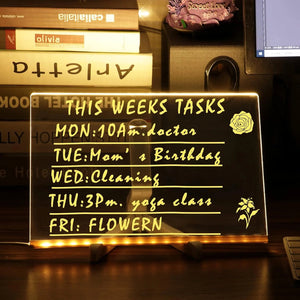 callitalia
olivia
Arletta
HOTEL BOOK
THIS WEEKS TASKS
MON:10Am.doctor
TUE:Mom's Birthday
WED:Cleaning
THU:3Pm. yoga class
FRI: FLOWERN